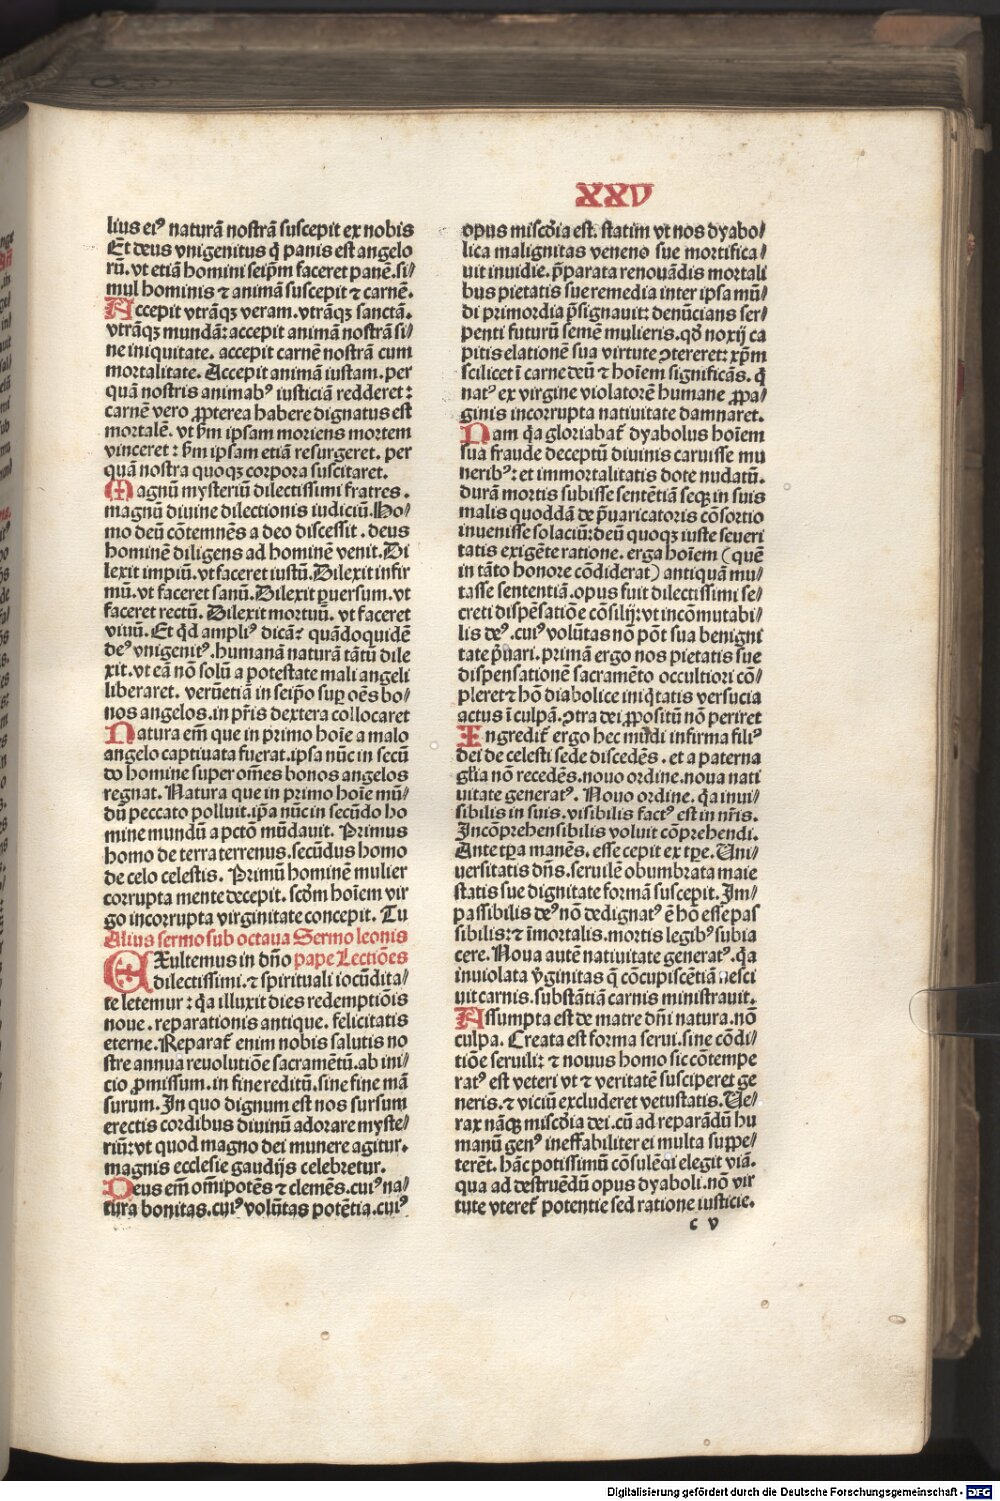 XXV
lius ei⁹ naturā nostrā suscepit ex nobis
Et deus vnigenitus q̄ panis est angelo
rū. vt etiā homini seip̄m faceret panē. si⸗
mul hominis ⁊ animā suscepit ⁊ carnē.
Accepit vtrāqꝫ veram. vtrāqꝫ sanctā.
vtrāqꝫ mundā: accepit animā nostrā si⸗
ne iniquitate. accepit carnē nostrā cum
mortalitate. Accepit animā iustam. per
quā nostris animab⁹ iusticiā redderet:
carnē vero ꝓpterea habere dignatus est
mortalē. vt ꝑm ipsam moriens mortem
vinceret: ꝑm ipsam etiā resurgeret. per
quā nostra quoqꝫ corpora suscitaret.
Magnū mysteriū dilectissimi fratres.
magnū diuine dilectionis iudiciū. Ho⸗
mo deū cōtemnēs a deo discessit. deus
hominē diligens ad hominē venit. Di
lexit impiū. vt faceret iustū. Dilexit infir
mū. vt faceret sanū. Dilexit ꝑuersum. vt
faceret rectū. Dilexit mortuū. vt faceret
viuū. Et qd̄ ampli⁹ dicā? quādoquidē
de⁹ vnigenit⁹. humanā naturā tātū dile
xit. vt eā nō solū a potestate mali angeli
liberaret. verūetiā in seip̄o suꝑ oēs bo⸗
nos angelos. in pr̄is dextera collocaret
Natura em̄ que in primo hoīe a malo
angelo captiuata fuerat. ipsa nūc in secū
do homine super om̄es bonos angelos
regnat. Natura que in primo hoīe mū⸗
dū peccato polluit. ip̄a nūc in secūdo ho
mine mundū a pctō mūdauit. Primus
homo de terra terrenus. secūdus homo
de celo celestis. Primū hominē mulier
corrupta mente decepit. scd̄m hoīem vir
go incorrupta virginitate concepit. Tu
Alius sermo sub octaua Sermo leonis
EXultemus in dn̄o pape Lectiōes
dilectissimi. ⁊ spirituali iocūdita⸗
te letemur: qꝫ illuxit dies redemptiōis
noue. reparationis antique. felicitatis
eterne. Reparat̄ enim nobis salutis no
stre annua reuolutiōe sacramētū. ab ini⸗
cio ꝓmissum. in fine reditū. sine fine mā
surum. In quo dignum est nos sursum
erectis cordibus diuinū adorare myste⸗
riū: vt quod magno dei munere agitur.
magnis ecclesie gaudijs celebretur.
Deus em̄ om̄ipotēs ⁊ clemēs. cui⁹ na⸗
tura bonitas. cui⁹ volūtas potētia. cui⁹
opus misc̄dia est. statim vt nos dyabo⸗
lica malignitas veneno sue mortifica⸗
uit inuidie. p̄parata renouādis mortali
bus pietatis sue remedia inter ipsa mū⸗
di primordia p̄signauit: denūcians ser⸗
penti futurū semē mulieris. qd̄ noxij ca
pitis elationē sua virtute ꝯtereret: xp̄m
scilicet ī carne deū ⁊ hoīem significās. q̄
nat⁹ ex virgine violatorē humane ꝓpa⸗
ginis incorrupta natiuitate damnaret.
Nam qꝫ gloriabat̄ dyabolus hoīem
sua fraude deceptū diuinis caruisse mu
nerib⁹: et immortalitatis dote nudatū.
durā mortis subisse sentētiā seqꝫ in suis
malis quoddā de p̄uaricatoris cōsortio
inuenisse solaciū: deū quoqꝫ iuste seueri
tatis exigēte ratione. erga hoīem (quē
in tāto honore cōdiderat) antiquā mu⸗
tasse sententiā. opus fuit dilectissimi se⸗
creti dispēsatiōe cōsilij: vt incōmutabi⸗
lis de⁹. cui⁹ volūtas nō pōt sua benigni
tate p̄uari. primā ergo nos pietatis sue
dispensationē sacramēto occultiori cō⸗
pleret ⁊ hō diabolice iniq̄tatis versucia
actus ī culpā. ꝯtra dei ꝓpositū nō periret
Ingredit̄ ergo hec mūdi infirma fili⁹
dei de celesti sede discedēs. et a paterna
gl̄ia nō recedēs. nouo ordine. noua nati
uitate generat⁹. Nouo ordine. qꝫ inui⸗
sibilis in suis. visibilis fact⁹ est in nr̄is.
Incōprehensibilis voluit cōprehendi.
Ante tp̄a manēs. esse cepit ex tp̄e. Uni⸗
uersitatis dn̄s. seruilē obumbrata maie
statis sue dignitate formā suscepit. Im⸗
passibilis de⁹ nō dedignat⁹ ē hō esse pas
sibilis: ⁊ īmortalis. mortis legib⁹ subia
cere. Noua autē natiuitate generat⁹. qꝫ
inuiolata v̄ginitas q̄ cōcupiscētiā nesci
uit carnis. substātiā carnis ministrauit.
Assumpta est de matre dn̄i natura. nō
culpa. Creata est forma serui. sine cōdi⸗
tiōe seruili: ⁊ nouus homo sic cōtempe
rat⁹ est veteri vt ⁊ veritatē susciperet ge
neris. ⁊ viciū excluderet vetustatis. Ue⸗
rax nāqꝫ misc̄dia dei. cū ad reparādū hu
manū gen⁹ ineffabiliter ei multa suppe⸗
terēt. hāc potissimū cōsulēdi elegit viā.
qua ad destruēdū opus dyaboli. nō vir
tute vteret̄ potentie sed ratione iusticie.
c v
Digitalisierung gefördert durch die Deutsche Forschungsgemeinschaft - DFG